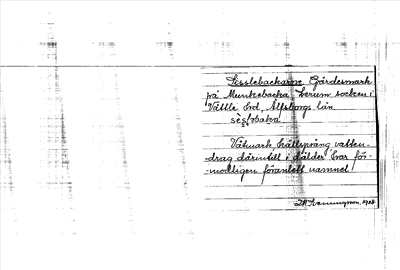 Sesslebackarne. Gärdesmark
på Munkebacka, Lerum socken i
Vättle hd, Älfsborgs län.
Våtmark, källsprång vatten-
drag därintill i dälder har för-
modligen föranlett namnet
1928